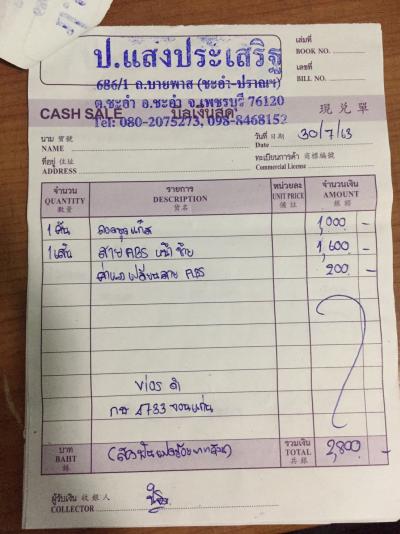 ป.แสงประเสริฐ
686/1 ถ.บายพาส (ชะอำ-ปราณฯ)
ต.ชะอำ อ.ชะอำ จ.เพชรบุรี 76120
Tel: 080-2075273, 098-8468152
เล่มที่
BOOK NO.
เลขที่
BILL NO.
CASH SALE บิลเงินสด 現兌單
นาม 寶號
NAME
วันที่ 日期 30/7/63
Date
ที่อยู่ 住址
ADDRESS
ทะเบียนการค้า 商標編號
Commercial License
จำนวน รายการ หน่วยละ จำนวนเงิน
QUANTITY DESCRIPTION UNIT PRICE AMOUNT
數量 貨名 備註 銀碼
1 คัน ถอดชุดแก๊ส 1,000 -
1 เส้น สาย ABS หน้าซ้าย 1,600 -
ค่าแรงเปลี่ยนสาย ABS 200 -
vios ดำ
กอ 4733 ขอนแก่น
บาท (สองพันแปดร้อยบาทถ้วน) รวมเงิน 2,800 -
BAHT TOTAL
銖 共銀
ผู้รับเงิน 收銀人
COLLECTOR